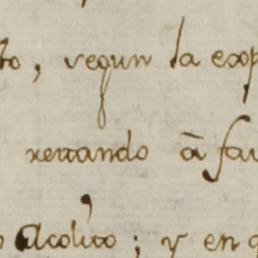 to, segun la exp
rerrando â fav
Acolito; y en q